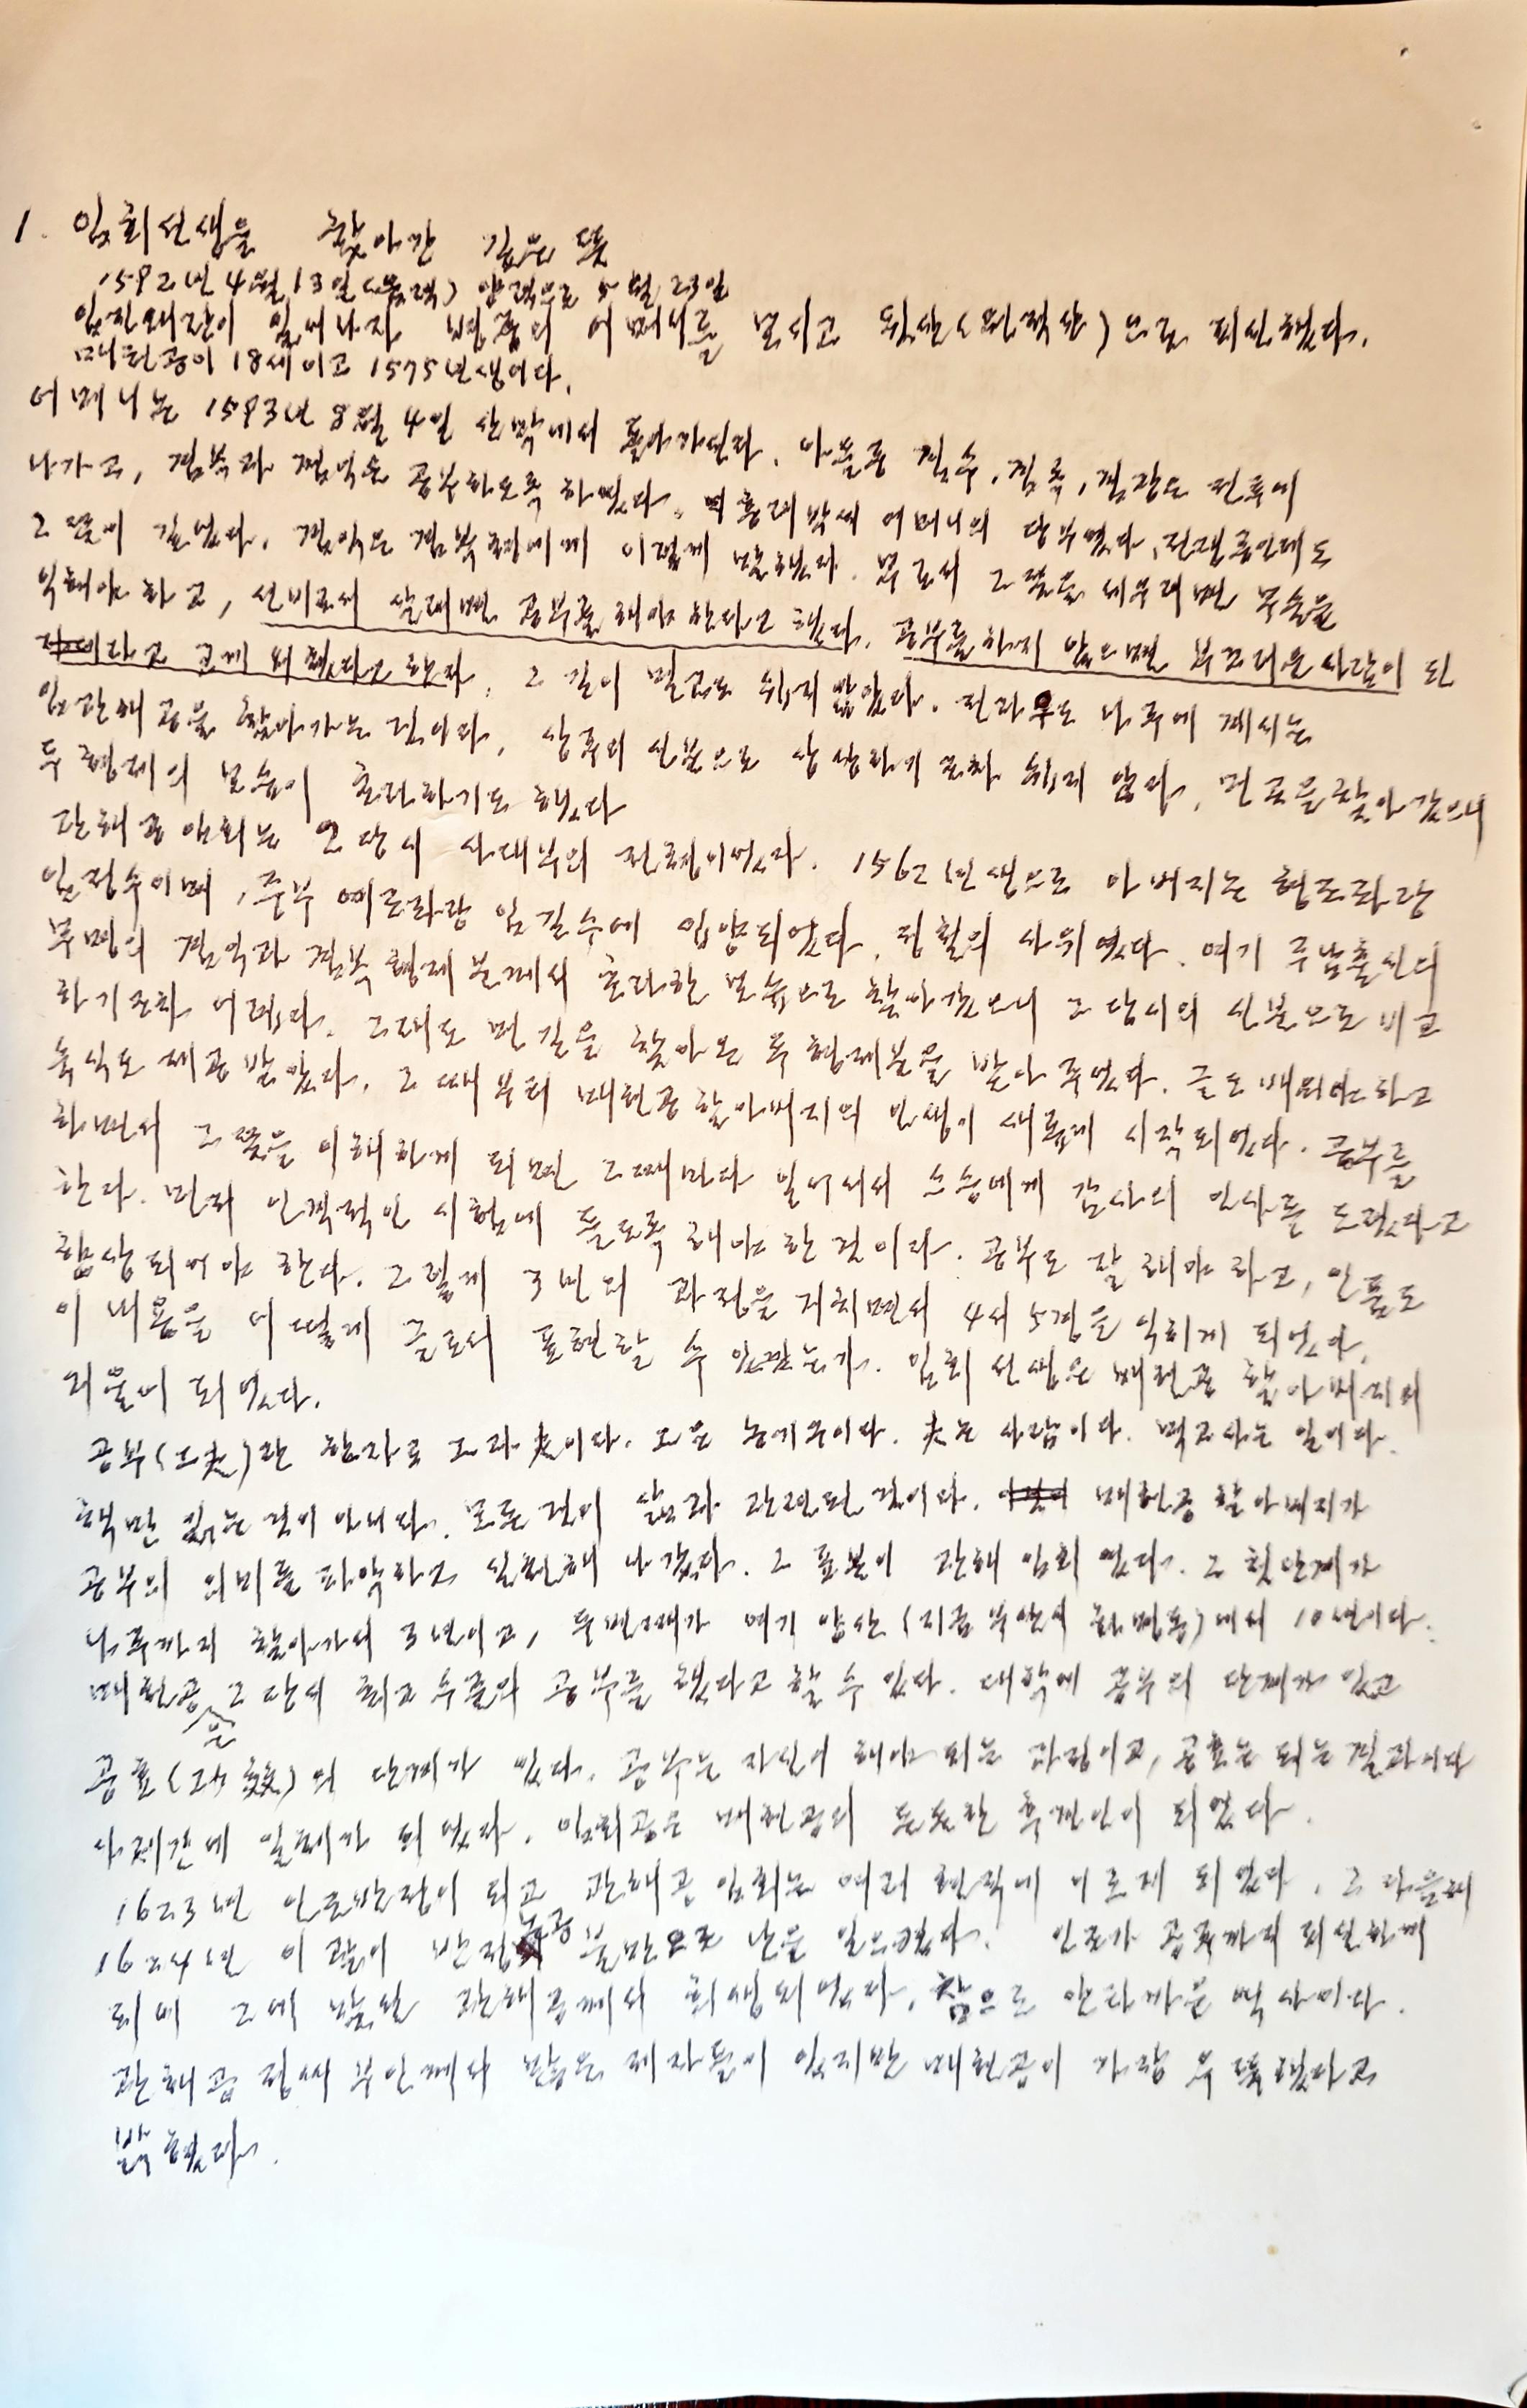 1. 임회선생을 찾아간 깊은 뜻
1592년 4월 13일(음력) 양력으로 5월 23일
임진왜란이 일어나자 병중의 어머니를 모시고 뒷산(원적산)으로 피신했다.
매헌공이 18세이고 1575년생이다.
어머니는 1593년 8월 4일 산막에서 돌아가셨다. 아들중 정수, 도 전투에
나가고, 과 은 공부하도록 하였다. 박씨 어머니의 당부였다.
그 뜻이 깊었다. 에게 이렇게 말했다. 로서 그 뜻을 세우려면 무술을
익혀야 하고, 선비로서 살려면 공부를 해야 한다고 했다. 공부를 하지 않으면 부끄러운 사람이 된
다고 크게 외쳤다고 한다. 그 길이 멀고도 쉽지 않았다. 전라도 나주에 계시는
임관해 공을 찾아가는 것이다. 상주의 신분으로 상상하기 조차 쉽지 않다. 먼 곳을 찾아 갔으니
두 형제의 모습이 초라하기도 했다
관해공 임회는 그 당시 사대부의 전형이었다. 1562년생으로 아버지는
임정수이며, 중부 임길수에 입양되었다. 정철의 사위였다. 여기
무명의 형제 분께서 초라한 모습으로 찾아 갔으니 그 당시의 신분으로 비교
하기조차 어렵다. 그래도 먼 길을 찾아 온 두 형제분을 받아 주었다. 글도 배워야 하고
숙식도 제공 받았다. 그 때부터 매헌공 할아버지의 인생이 새롭게 시작되었다. 공부를
하면서 그 뜻을 이해하게 되면 그때마다 일어서서 스승에게 감사의 인사를 드렸다고
한다. 먼저 인격적인 시험에 들도록 해야 한 것이다. 공부도 잘 해야 하고, 인품도
향상되어야 한다. 그렇게 3년의 과정을 거치면서 4서 5경을 익히게 되었다.
이 내용을 어떻게 글로서 표현할 수 있겠는가. 임회 선생은 매헌공 할아버지의
거울이 되었다.
공부(工夫)란 한자로 工과 夫이다. 工은 농기구이다. 夫는 사람이다. 먹고사는 일이다.
책만 읽는 것이 아니다. 모든 것이 삶과 관련된 것이다. 매헌공 할아버지가
공부의 의미를 파악하고 실천해 나갔다. 그 표본이 관해 임회 였다. 그 첫단계가
나주까지 찾아가서 3년이고, 두번째가 여기 양산(지금 부산시 화명동)에서 10년이다.
매헌공은 그 당시 최고 수준의 공부를 했다고 할 수 있다. 대학에 공부의 단계가 있고
공효(功效)의 단계가 있다. 공부는 자신이 해야 되는 과정이고, 공효는 되는 결과이다
사제간에 일체가 되었다. 임회공은 매헌공의 든든한 후견인이 되었다.
1623년 인조반정이 되고 관해공 임회는 여러 현직에 이르게 되었다. 그 다음해
1624년 이괄이 반정 논공 불만으로 난을 일으켰다. 인조가 공주까지 피신하게
되며 그에 맞선 관해공께서 희생되었다. 참으로 안타까운 역사이다.
관해공 정씨 부인께서 많은 제자들이 있지만 매헌공이 가장 우뚝했다고
밝혔다.